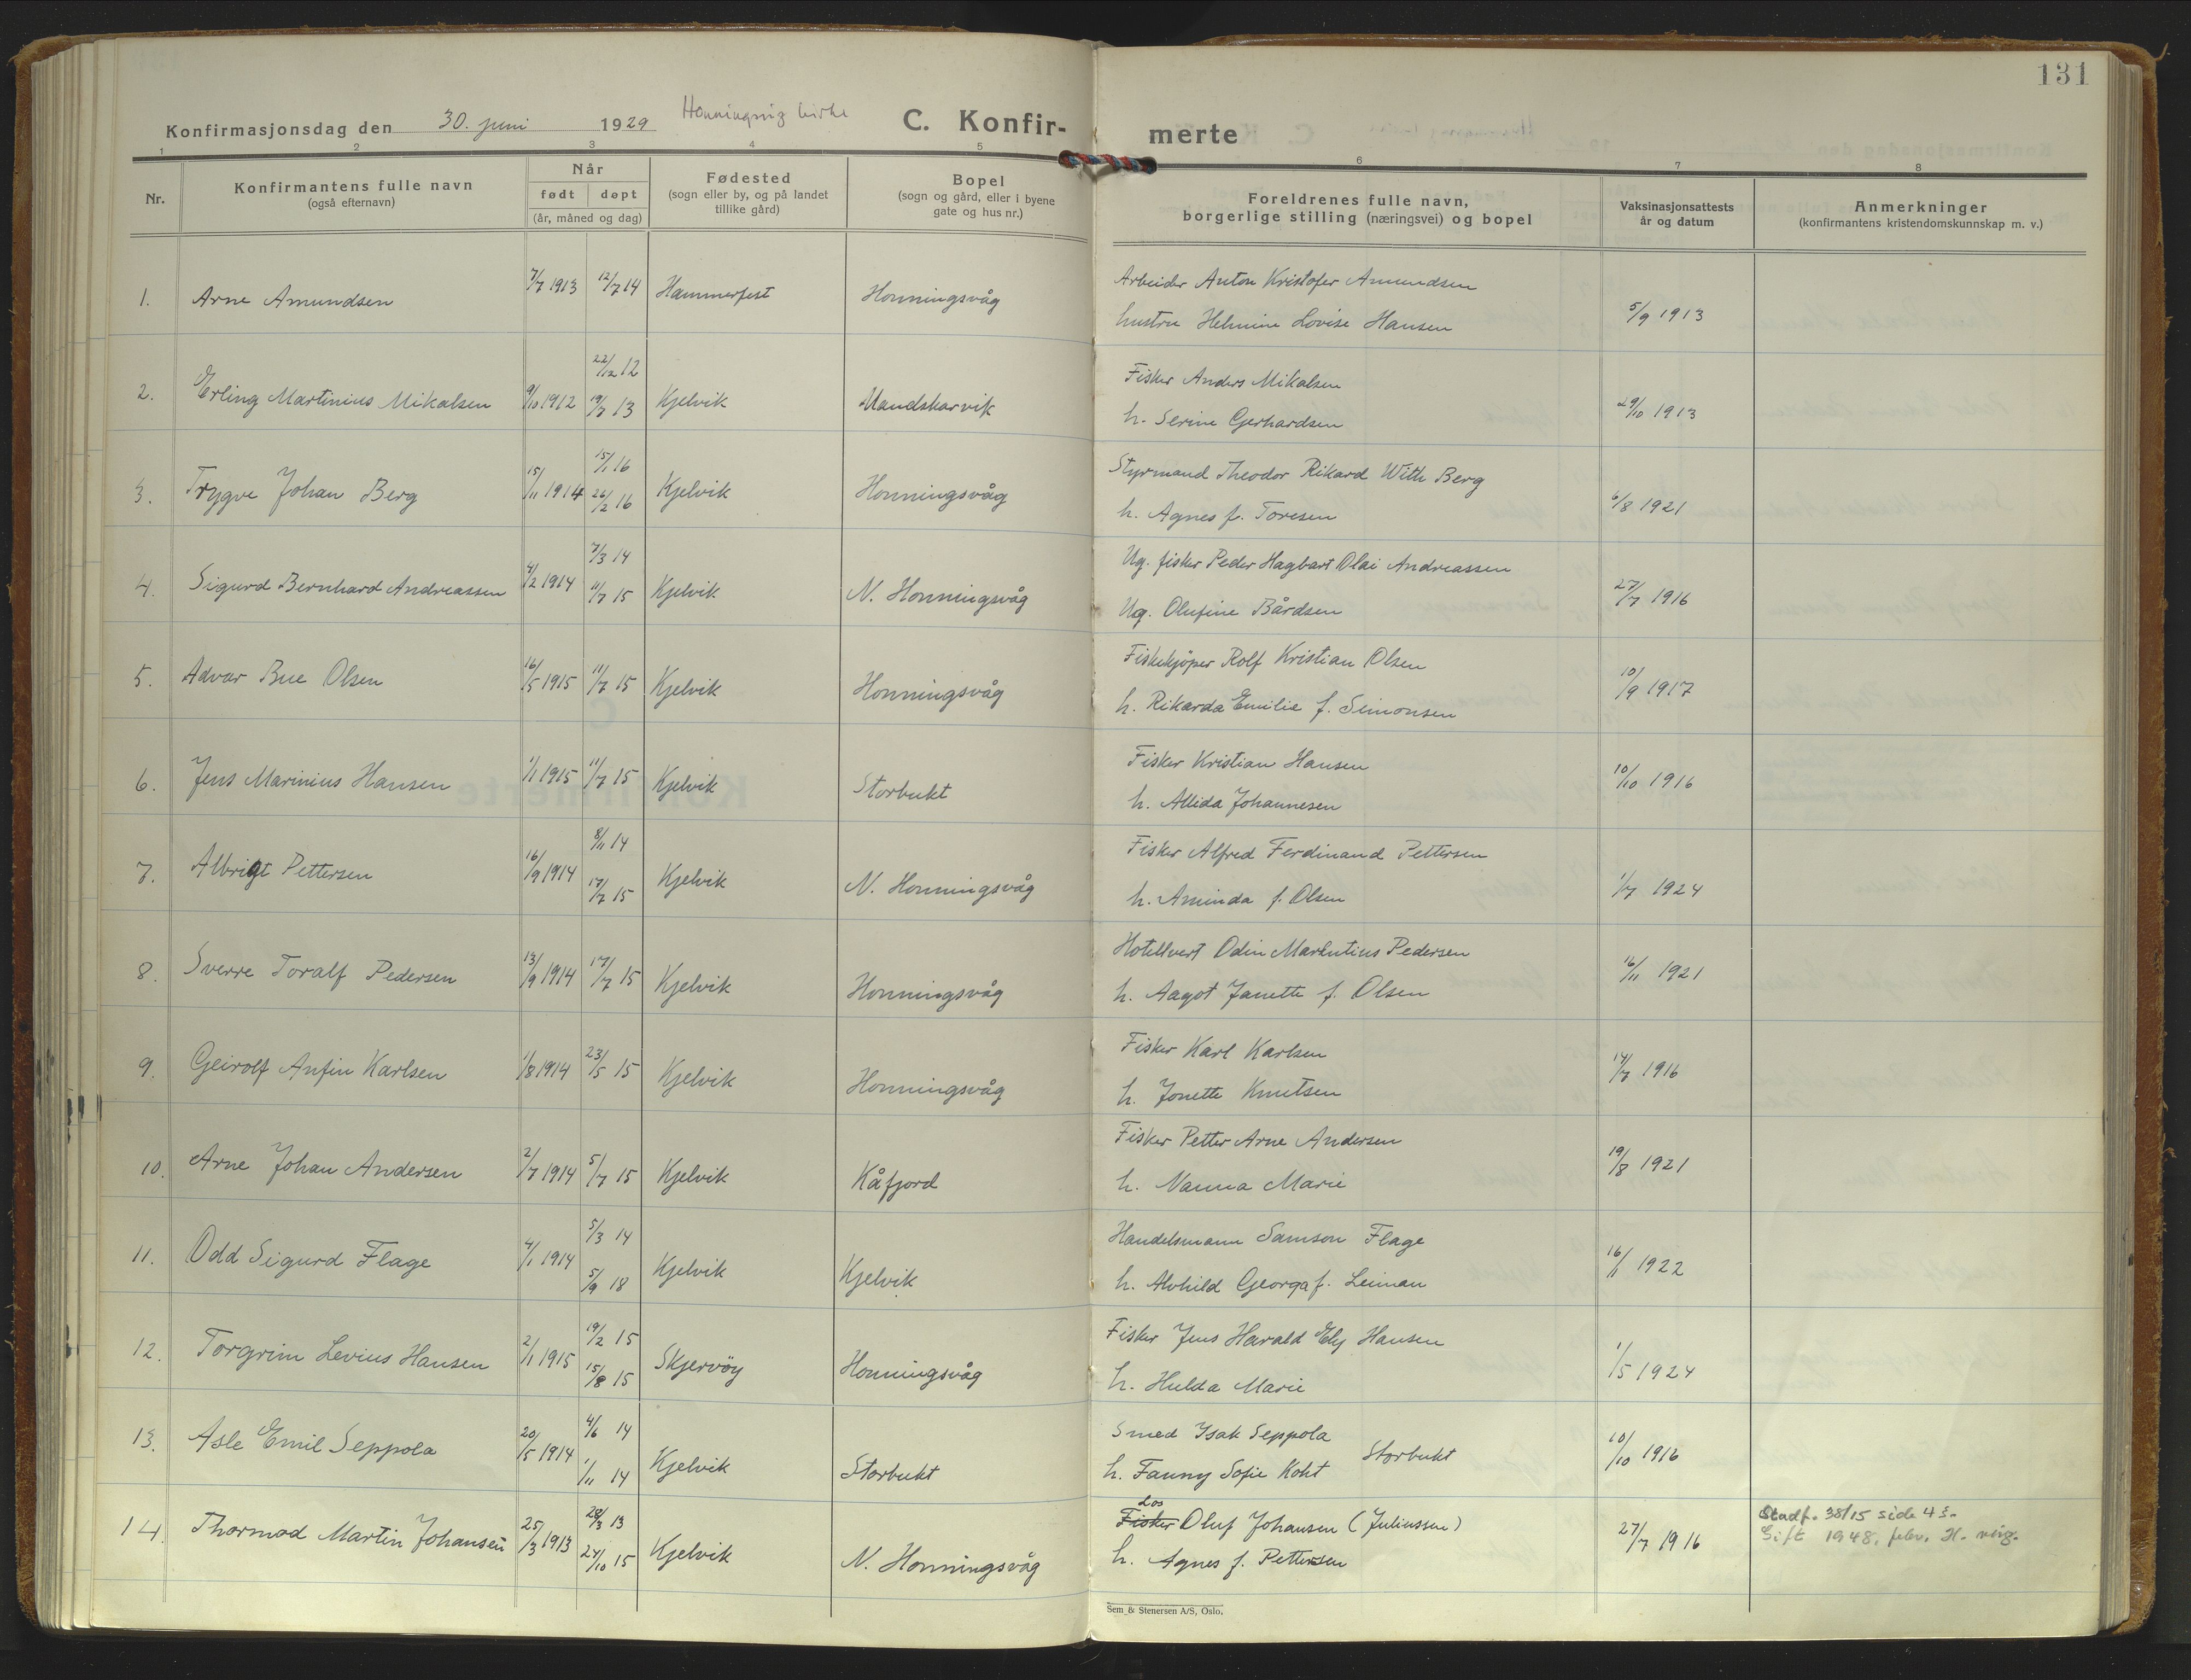 131
Konfirmasjonsdag den 30. juni 1929 Honningsvig kirke C. Konfir- merte
1 2 3 4 5 6 7 8
Nr.
Konfirmantens fulle navn
(også efternavn)
Når
født døpt
(år, måned og dag)
Fødested
(sogn eller by, og på landet
tillike gård)
Bopel
(sogn og gård, eller i byene
gate og hus nr.)
Foreldrenes fulle navn,
borgerlige stilling (næringsvei) og bopel
Vaksinasjonsattests
år og datum
Anmerkninger
(konfirmantens kristendomskunnskap m. v.)
1. Arne Amundsen 7/7 1913 12/7 14 Hammerfest Honningsvåg
Arbeider Anton Kristofer Amundsen
hustru Helmine Lovise Hansen
5/9 1913
2. Erling Martinius Mikalsen 9/10 1912 22/12 12
19/7 13 Kjelvik Vandskarvik
Fisker Anders Mikalsen
h. Serine Gerhardsen
29/10 1913
3. Trygve Johan Berg 15/11 1914 15/1 16
26/2 16 Kjelvik Honningsvåg
Styrmand Theodor Rikard With Berg
h. Agnes f. Toresen
6/8 1921
4. Sigurd Bernhard Andreassen 4/2 1914 7/3 14
11/7 15 Kjelvik N. Honningsvåg
Ug. fisker Peder Hagbart Olai Andreassen
Ug. Olufine Bårdsen
27/7 1916
5. Advar Bue Olsen 16/5 1915 11/7 15 Kjelvik Honningsvåg
Fiskekjöper Rolf Kristian Olsen
h. Rikarda Emilie f. Simonsen
10/9 1917
6. Jens Marinius Hansen 1/1 1915 11/7 15 Kjelvik Storbukt
Fisker Kristian Hansen
h. Allida Johannesen
10/10 1916
7. Albrigt Pettersen 16/9 1914 8/11 14
17/7 15 Kjelvik N. Honningsvåg
Fisker Alfred Ferdinand Pettersen
h. Aminda f. Olsen
1/7 1924
8. Sverre Toralf Pedersen 13/9 1914 17/7 15 Kjelvik Honningsvåg
Hotellvert Odin Marentius Pedersen
h. Aagot Janette f. Olsen
16/11 1921
9. Geirolf Anfin Karlsen 1/8 1914 23/5 15 Kjelvik Honningsvåg
Fisker Karl Karlsen
h. Jonette Knutsen
14/7 1916
10. Arne Johan Andersen 2/7 1914 5/7 15 Kjelvik Kåfjord
Fisker Petter Arne Andersen
h. Nanna Marie
19/8 1921
11. Odd Sigurd Flage 4/1 1914 5/3 14
5/9 18 Kjelvik Kjelvik
Handelsmann Samson Flage
h. Alvhild Georga f. Leiman
16/11 1922
12. Torgrim Levius Hansen 2/1 1915 19/2 15
15/8 15 Skjervöy Honningsvåg
Fisker Jens Harald Ely Hansen
h. Hulda Marie
1/5 1924
13. Asle Emil Seppola 20/5 1914 4/6 14
1/11 14 Kjelvik Storbukt
Smed Isak Seppola
h. Fanny Sofie Koht Storbukt
10/10 1916
14. Thormod Martin Johansen 25/3 1913 28/3 13
24/10 15 Kjelvik N. Honningsvåg
Los
Fisker Oluf Johansen (Juliussen)
h. Agnes f. Pettersen
27/7 1916
Stadf. 38/15 side 4
Gift 1948, febr. H. våg.
Sem & Stenersen A/S, Oslo.